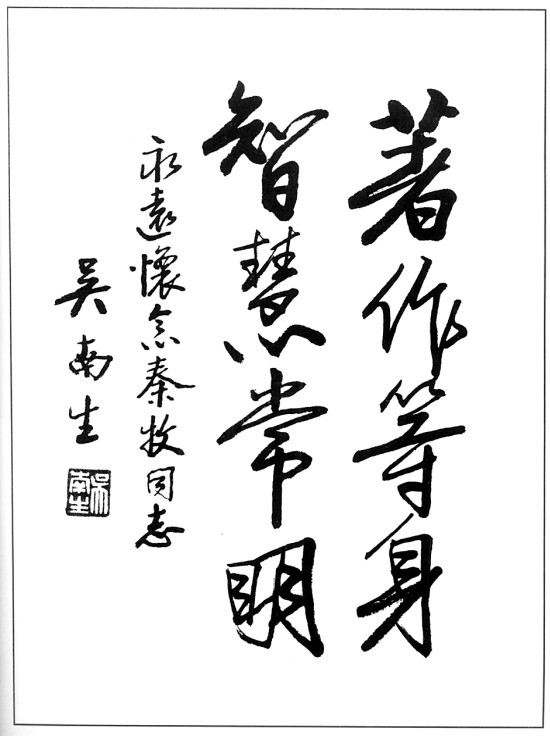 著作等身
智慧常明
永遠懷念秦牧同志
吴南生
吴南生